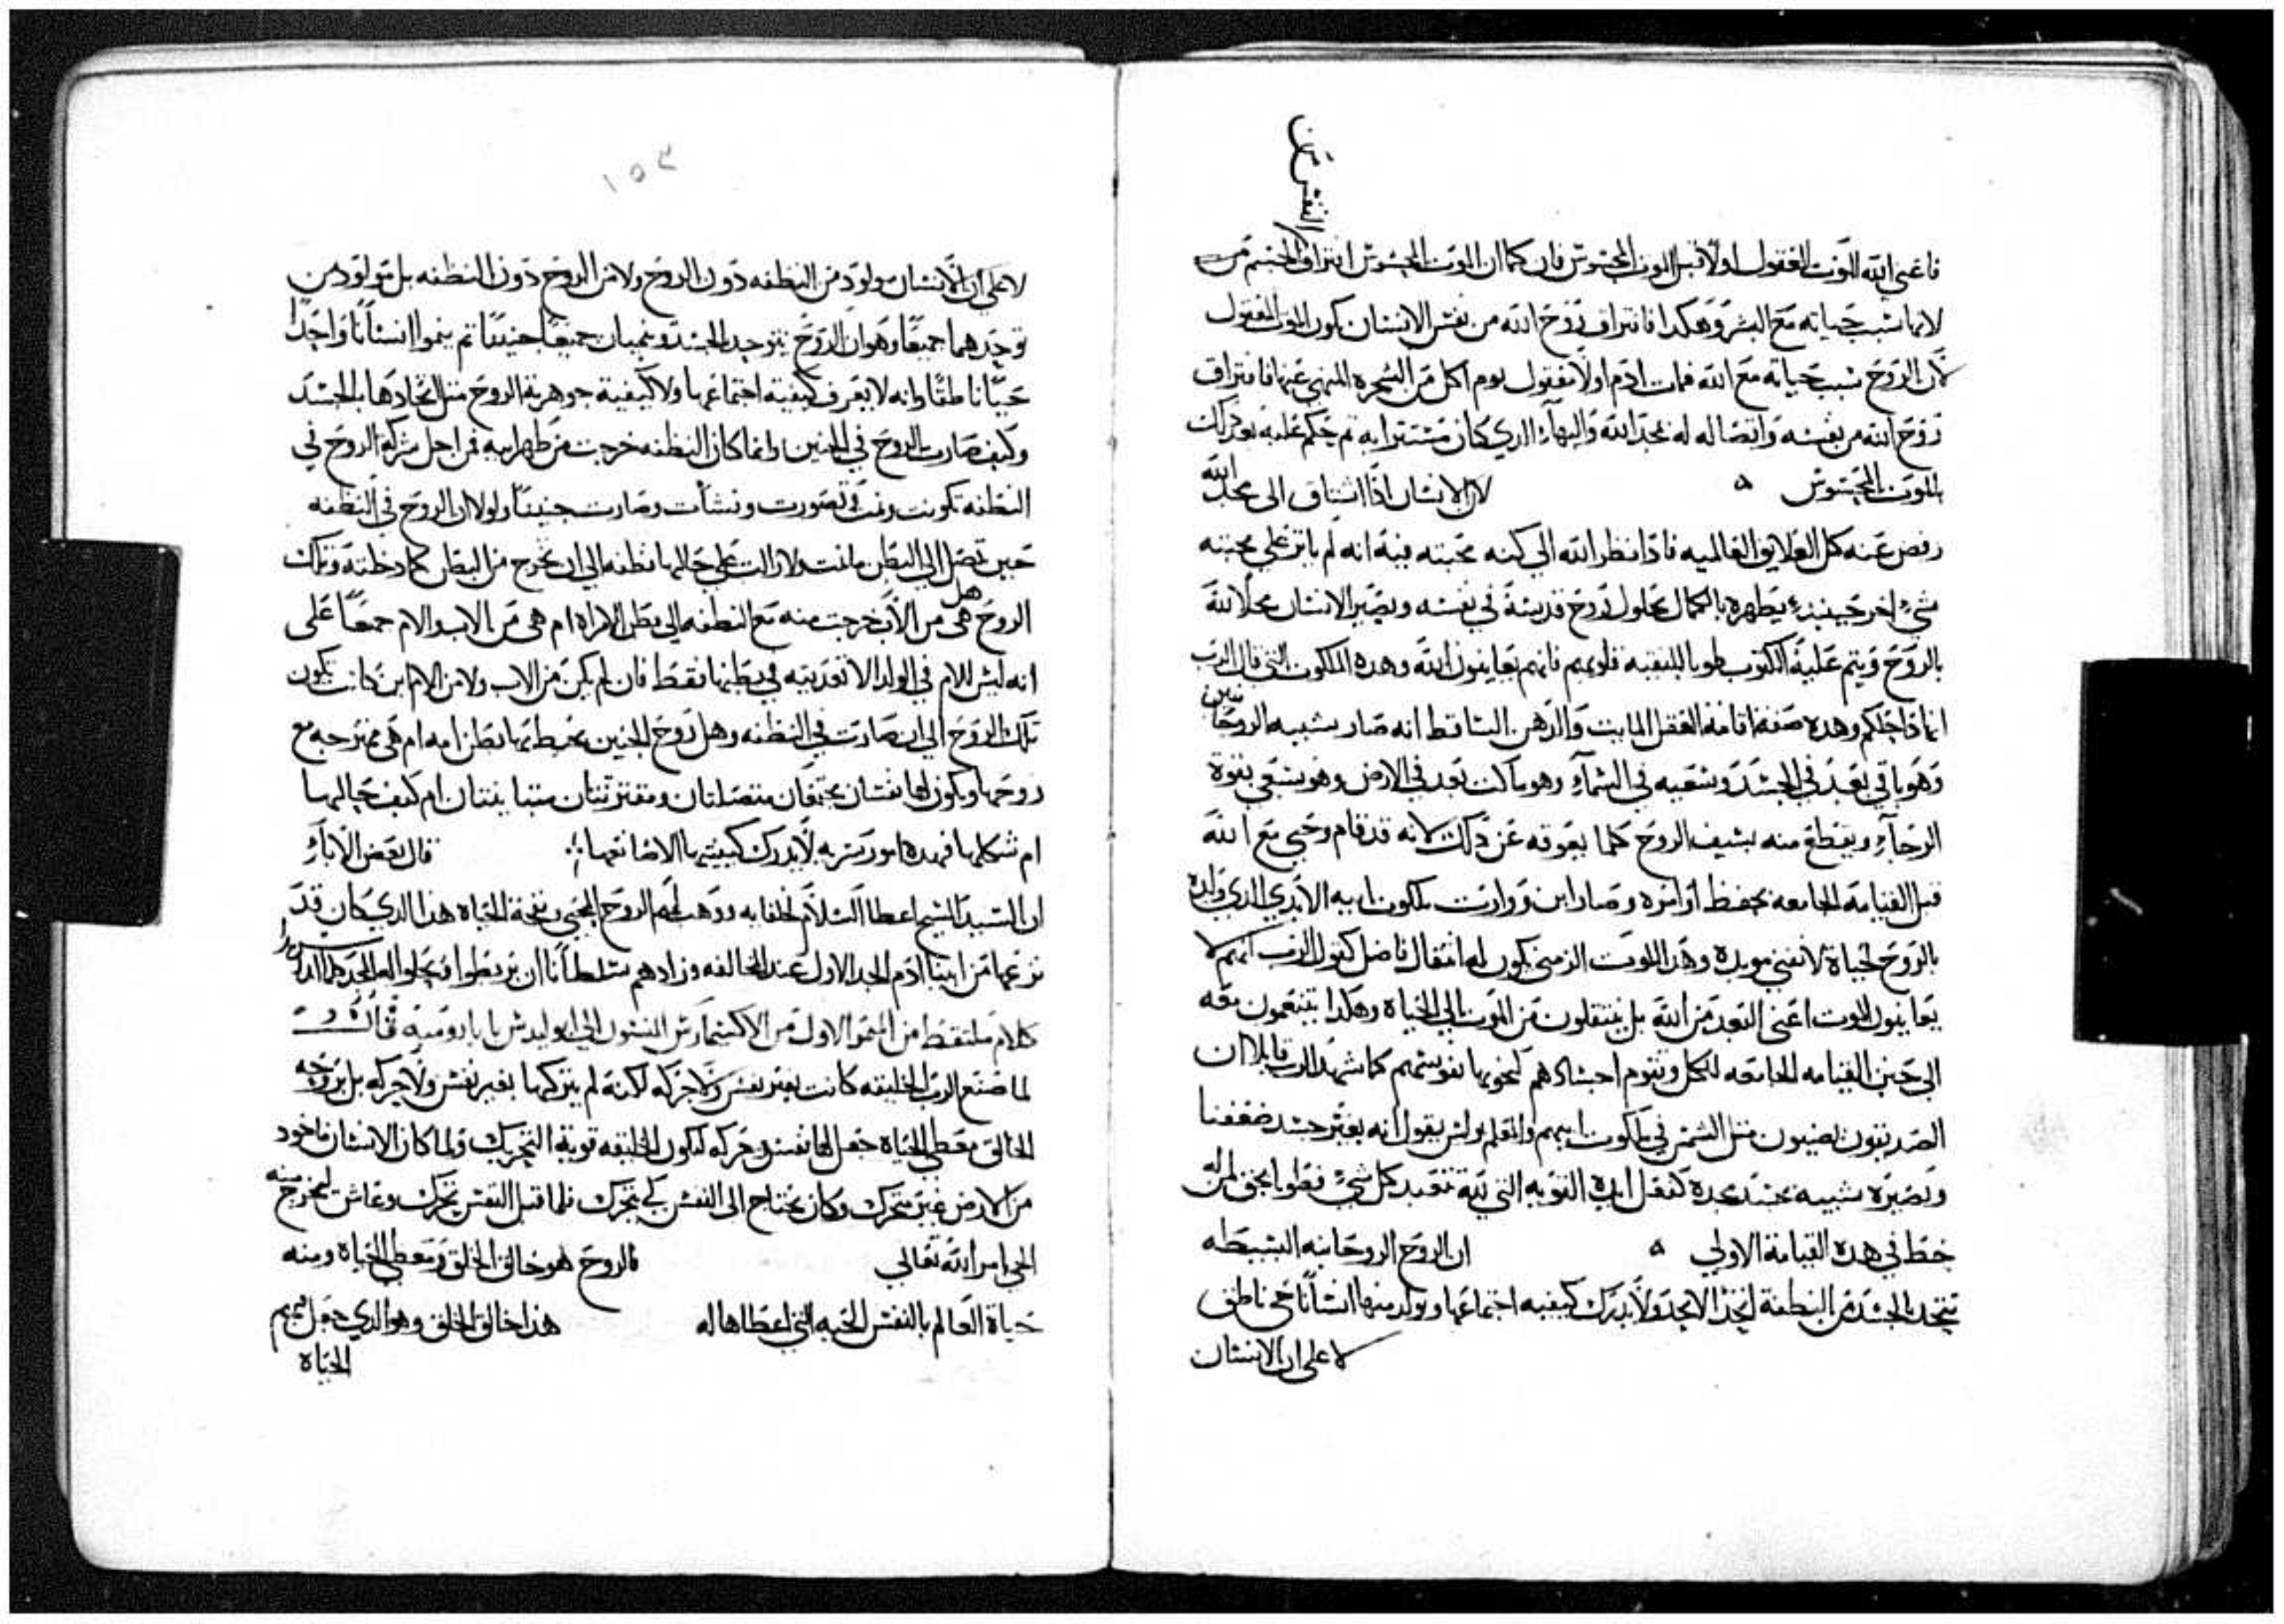 النفس من
فاعني ابته الموت المعقول اولا قبل الموت المحسوس فان كما ان الموت المحسوس افتراق الجسم من
لانها سبب حياته مع البشر وهكدا فافتراق روح الله من نفس الانسان يكون الموت المعقول
لان الروح سبب حياته مع الله فمات ادم اولا معقول يوم اكل من الشجره المنهي عنها فافتراق
روح الله من نفسه واتصاله له مجد الله والبهاء الدي كان مستترا به تم حكم عليه بعد دلك
بالموت المحسوس ه لان الانسان اذا اشتاق الى مجد الله
رفض عنه كل العلايق العالميه فادا نظر الله الي كنه محبته فيه انه لم ياثر علي محبته
شيء اخر حينيد يطهره بالكمال بحلول روح قدسه في نفسه ويصير الانسان محلا لله
بالروح ويتم عليه المكتوب طوبا للنقيه قلوبهم فانهم يعاينون الله وهده الملكوت التي قال الرب
انها داخلكم وهده صفة اقامة العقل المايت والدهن الساقط انه صار بشبه الروحانيين
وهو باقي بعد في الجسد وسعيه في السماء وهو ماكث بعد في الارض وهو يسعي بقوة
الرجاء ويقطع منه بسيف الروح كلما يعوقه عن دلك لانه قد قام وحيي مع الله
قبل القيامه الجامعه بحفظ اوامره وصار ابن ووارت ملكوت ابيه الابدي الدي ولده
بالروح لحياة لا تفني موبده وهدا الموت الزمني يكون له انتقال فاضل كقول الرب انهم لا
يعاينون الموت اعني البعد من الله بل ينتقلون من الموت الي الحياة وهكدا يتنعمون معه
الي حين القيامه الجامعه للكل وتقوم اجسادهم لنحوها نفوسهم كما شهد الرب قايلا ان
الصديقون يضيون متل الشمس في ملكوت ابيهم والمعلم بولس يقول انه يغير جسد ضعفنا
ويصيره شبيه بجسد مجده كفعل ايده القويه التي له تتعبد كل شيء فطوبا لمن له
حظ في هده القيامة الاولي ه ان الروح الروحانيه البسيطه
تتحد بالجسد من النطفة لا يدرك كيفيه اجتماعها ويولد منها انسانا حي ناطق
لا علي ان الانسان
١٥٣
لا علي ان الانسان مولود من النطفه دون الروح ولا من الروح دون النطفه بل مولود من
توحدهما جميعا وهو ان الروح يتوحد بالجسد وينميان جميعا جنينا تم ينموا انسانا واحدا
حيا ناطقا وانه لا يعرف كيفيه اجتماعها ولا كيفية جوهرية الروح متل اتحادها بالجسد
وكيف صارت الروح في الجنين وانما كان النطفه خرجت من ظهر ابيه فمن اجل شركة الروح في
النطفه تكونت ونمت وتصورت ونشات وصارت جنينا ولولا ان الروح في النطفه
حين تصل الي البطن ما نمت ولا زالت علي حالها نطفه الي ان تخرج من البطن كما دخلته وتلك
الروح هل هي من الاب خرجت منه مع النطفه الي بطن الامراة ام هي من الاب والام جمعا علي
انه ليس للام في الولد الا تغديته في بطنها فقط فان لم يكن من الاب ولا من الام اين كانت تكون
تلك الروح الي ان صارت في النطفه وهل روح الجنين يحيط بها بطن امه ام هي ممتزجه مع
روحها ويكون لها نفسان مجتمعان متصلتان ومفترقتان متباينتان ام كيف حالها
ام شكلها فهده امور سريه لا يدرك كيفيتها الا صانعها ؛ قال بعض الاباء
ان السيد المسيح اعطا السلام لخلفايه ووهب لهم الروح المحيي ونفخة الحياه هدا الدي كان قد
نزعها من ابينا ادم الجد الاول عند المخالفه وزادهم سلطانا ان يربطوا ويحلوا
كلام ملتقط من الاول من الاكسيمارس المنسوب الي ابوليدس بابا روميه قال
لما صنع الرب الخليقه كانت بغير نفس ولا حركه لكنه لم يتركها بغير نفس ولا حركه بل بروحه
الخالق معطي الحياه جعل لها نفس وحركه لتكون الخليقه قوية التحريك ولما كان الانسان ماخود
من الارض غير متحرك وكان يحتاج الى النفس لكي يتحرك فلما قبل النفس تحرك وعاش ليخرج منه
الحي بامر الله تعالي فالروح هو خالق الخلق ومعطي الحياه ومنه
حياة العالم بالنفس الحيه التي اعطاها له هدا خالق الخلق وهو الدي جعل فيهم
الحياه